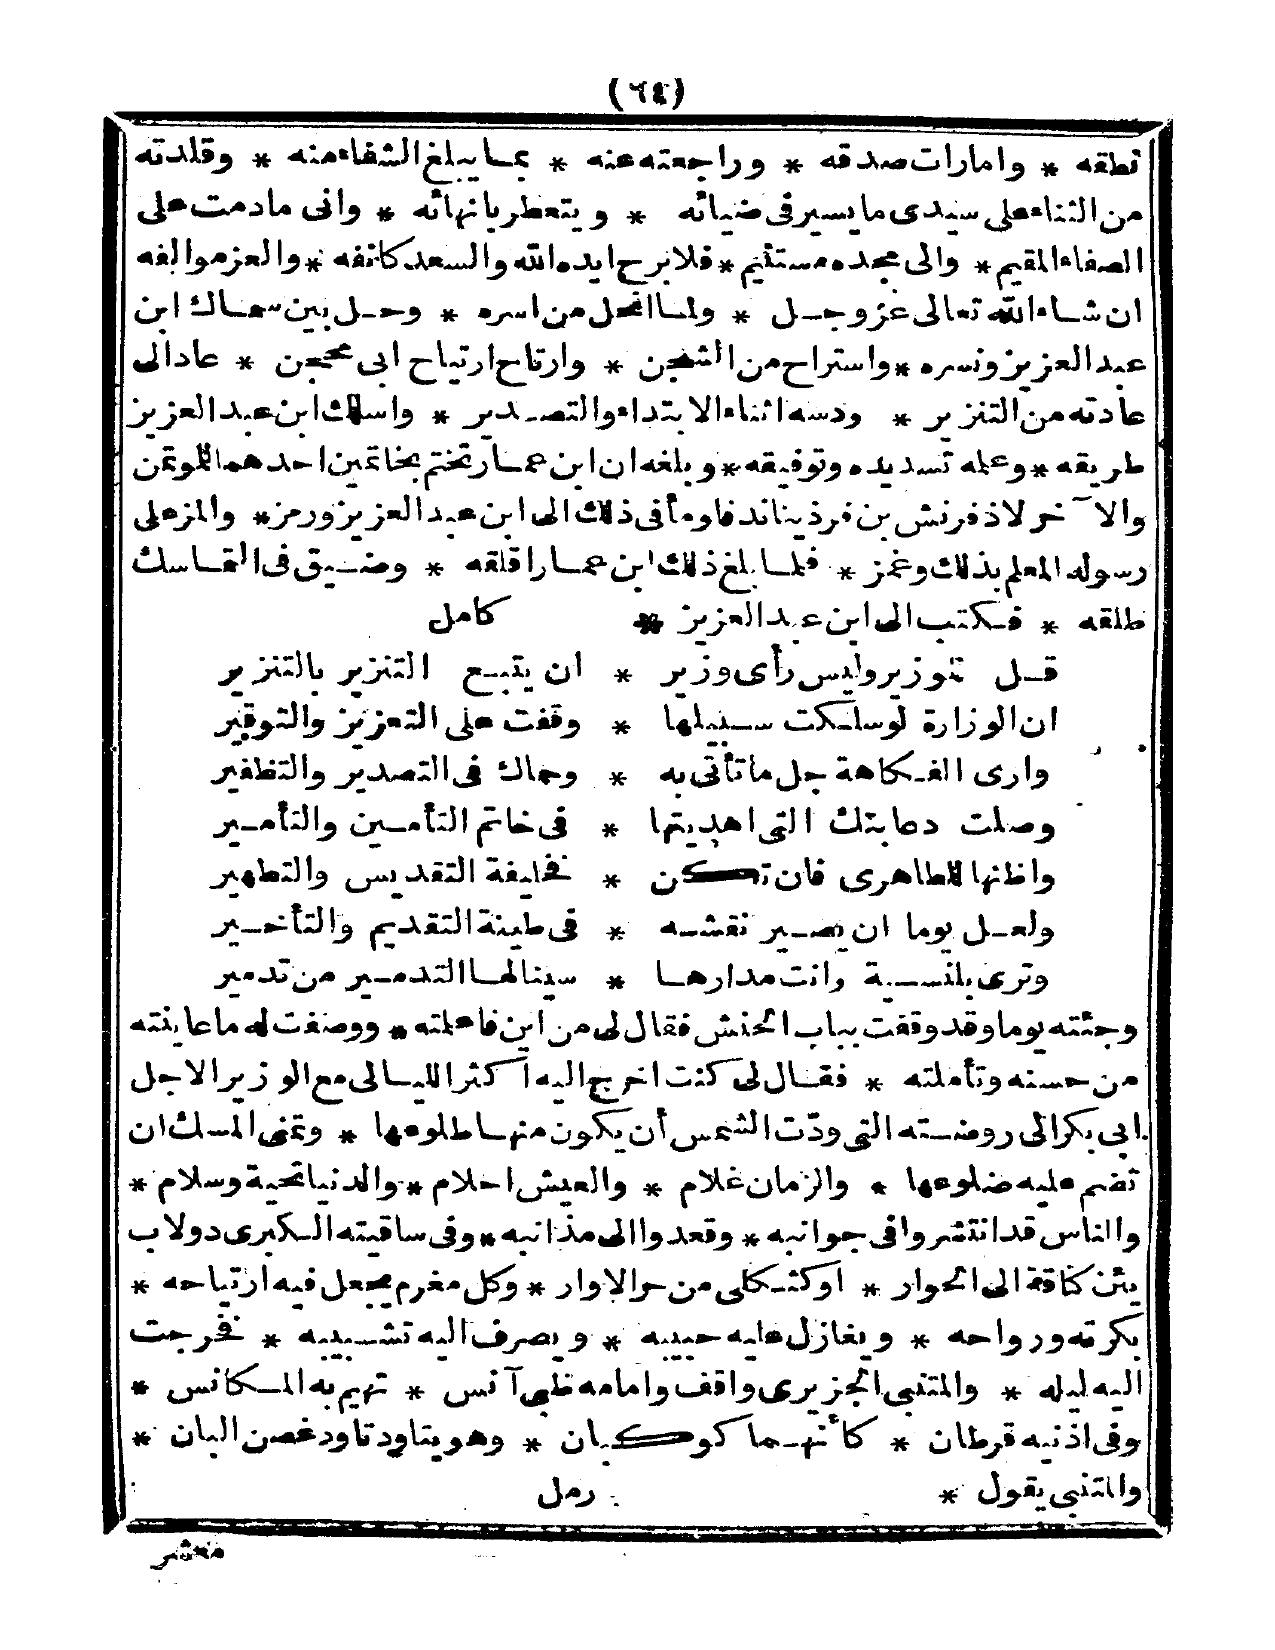 (٦٤)
نطقه * وامارات صدقه * وراجعته عنه * بما يبلغ الشفاء منه * وقلدته
من الثناء على سيدى ما يسير فى ضيائه * ويتعطر بانهائه * وانى ما دمت على
الصفاء المقيم * والى مجده مستنيم * فلا برح ايده الله والسعد كانفه * والعز موالفه
ان شاء الله تعالى عز وجل * ولما انحل من اسره * وحل بين سماك ابن
عبد العزيز ونسره * واستراح من الشجن * وارتاح ارتياح ابى محجن * عاد الى
عادته من التنزير * ودسه اثناء الابتداء والتصدير * واسلاك ابن عبد العزيز
طريقه * وعمله تسديده وتوفيقه * وبلغه ان ابن عمار تختم بخاتمين احدهما للموتمن
والآخر لاذفرنش بن فرذيناند فاومأ فى ذلك الى ابن عبد العزيز ورمز * والمز على
رسوله المعلم بذلك وغمز * فلما بلغ ذلك ابن عمار اقلقه * وضيق فى التماسك
طلقه * فكتب الى ابن عبد العزيز * كامل
قل للوزير وليس رأى وزير * ان يتبع التنزير بالتنزير
ان الوزارة لو سلكت سبيلها * وقفت على التعزيز والتوقير
وارى الفكاهة جل ما تأتى به * وحماك فى التصدير والتظفير
وصلت دعابتك التى اهديتها * فى خاتم التأمين والتأمير
واظنها للطاهرى فان تكن * فخليفة التقديس والتطهير
ولعل يوما ان يصير نقشه * فى طينة التقديم والتأخير
وترى بلنسية وانت مدارها * سينالها التدمير من تدمير
وجئته يوما وقد وقفت بباب الحنش فقال لى من اين فاعلمته * ووصفت له ما عاينته
من حسنه وتأملته * فقال لى كنت اخرج اليه اكثر الليالى مع الوزير الاجل
ابى بكر الى روضته التى ودّت الشمس أن يكون منها طلوعها * وتمنى المسك ان
تضم عليه ضلوعها * والزمان غلام * والعيش احلام * والدنيا تحية وسلام *
والناس قد انتشروا فى جوانبه * وقعدوا الى مذانبه * وفى ساقيته الكبرى دولاب
يئن كناقة الى الحوار * او كثكلى من حر الاوار * وكل مغرم يجعل فيه ارتياحه *
بكرته ورواحه * ويغازل عليه حبيبه * ويصرف اليه تشبيبه * فخرجت
اليه ليله * والمتنبى الجزيرى واقف وامامه ظبى آنس * تهيم به المكانس *
وفى اذنيه قرطان * كأنهما كوكبان * وهو يتاود تاود غصن البان *
والمتنبى يقول * رمل
معشر